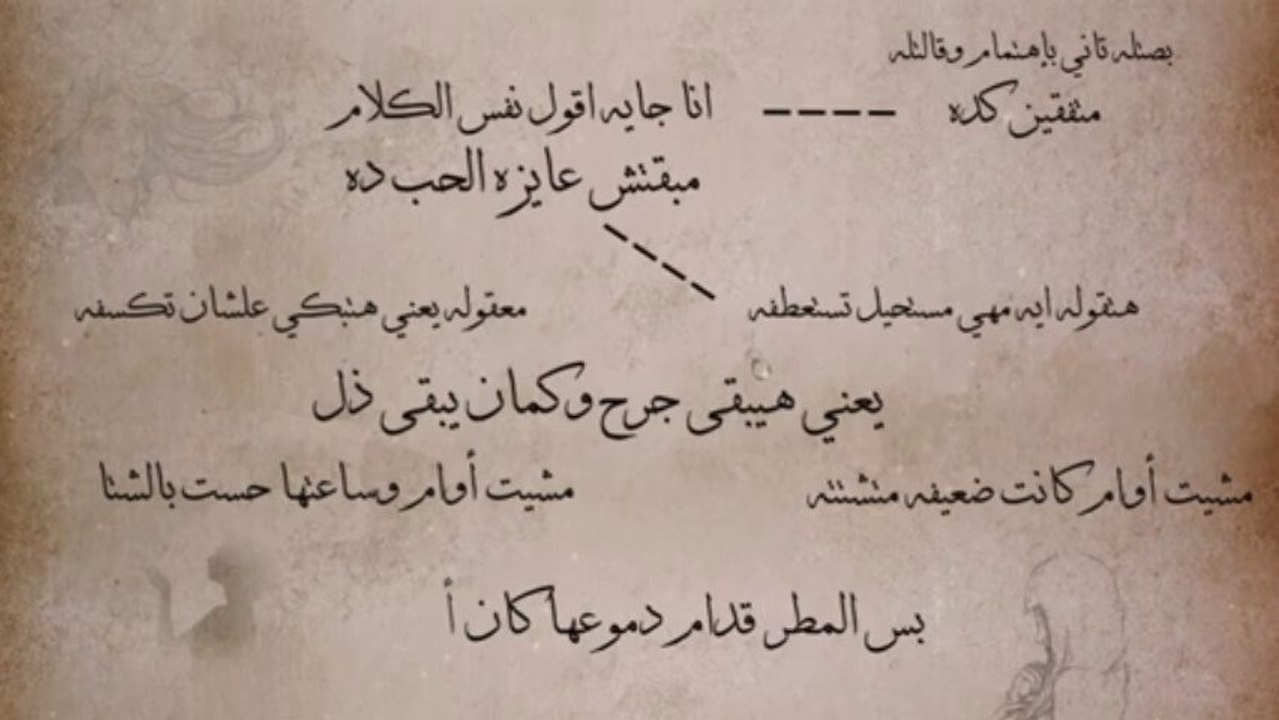 بصتله تاني بإهتمام وقالتله
متفقين كده ---- انا جايه اقول نفس الكلام
مبقتش عايزه الحب ده
هتقوله ايه مهي مستحيل تستعطفه
معقوله يعني هتبكي علشان تكسفه
يعني هيبقى جرح وكمان يبقى ذل
مشيت أوام كانت ضعيفه متشتته
مشيت أوام وساعتها حست بالشتا
بس المطر قدام دموعها كان أ